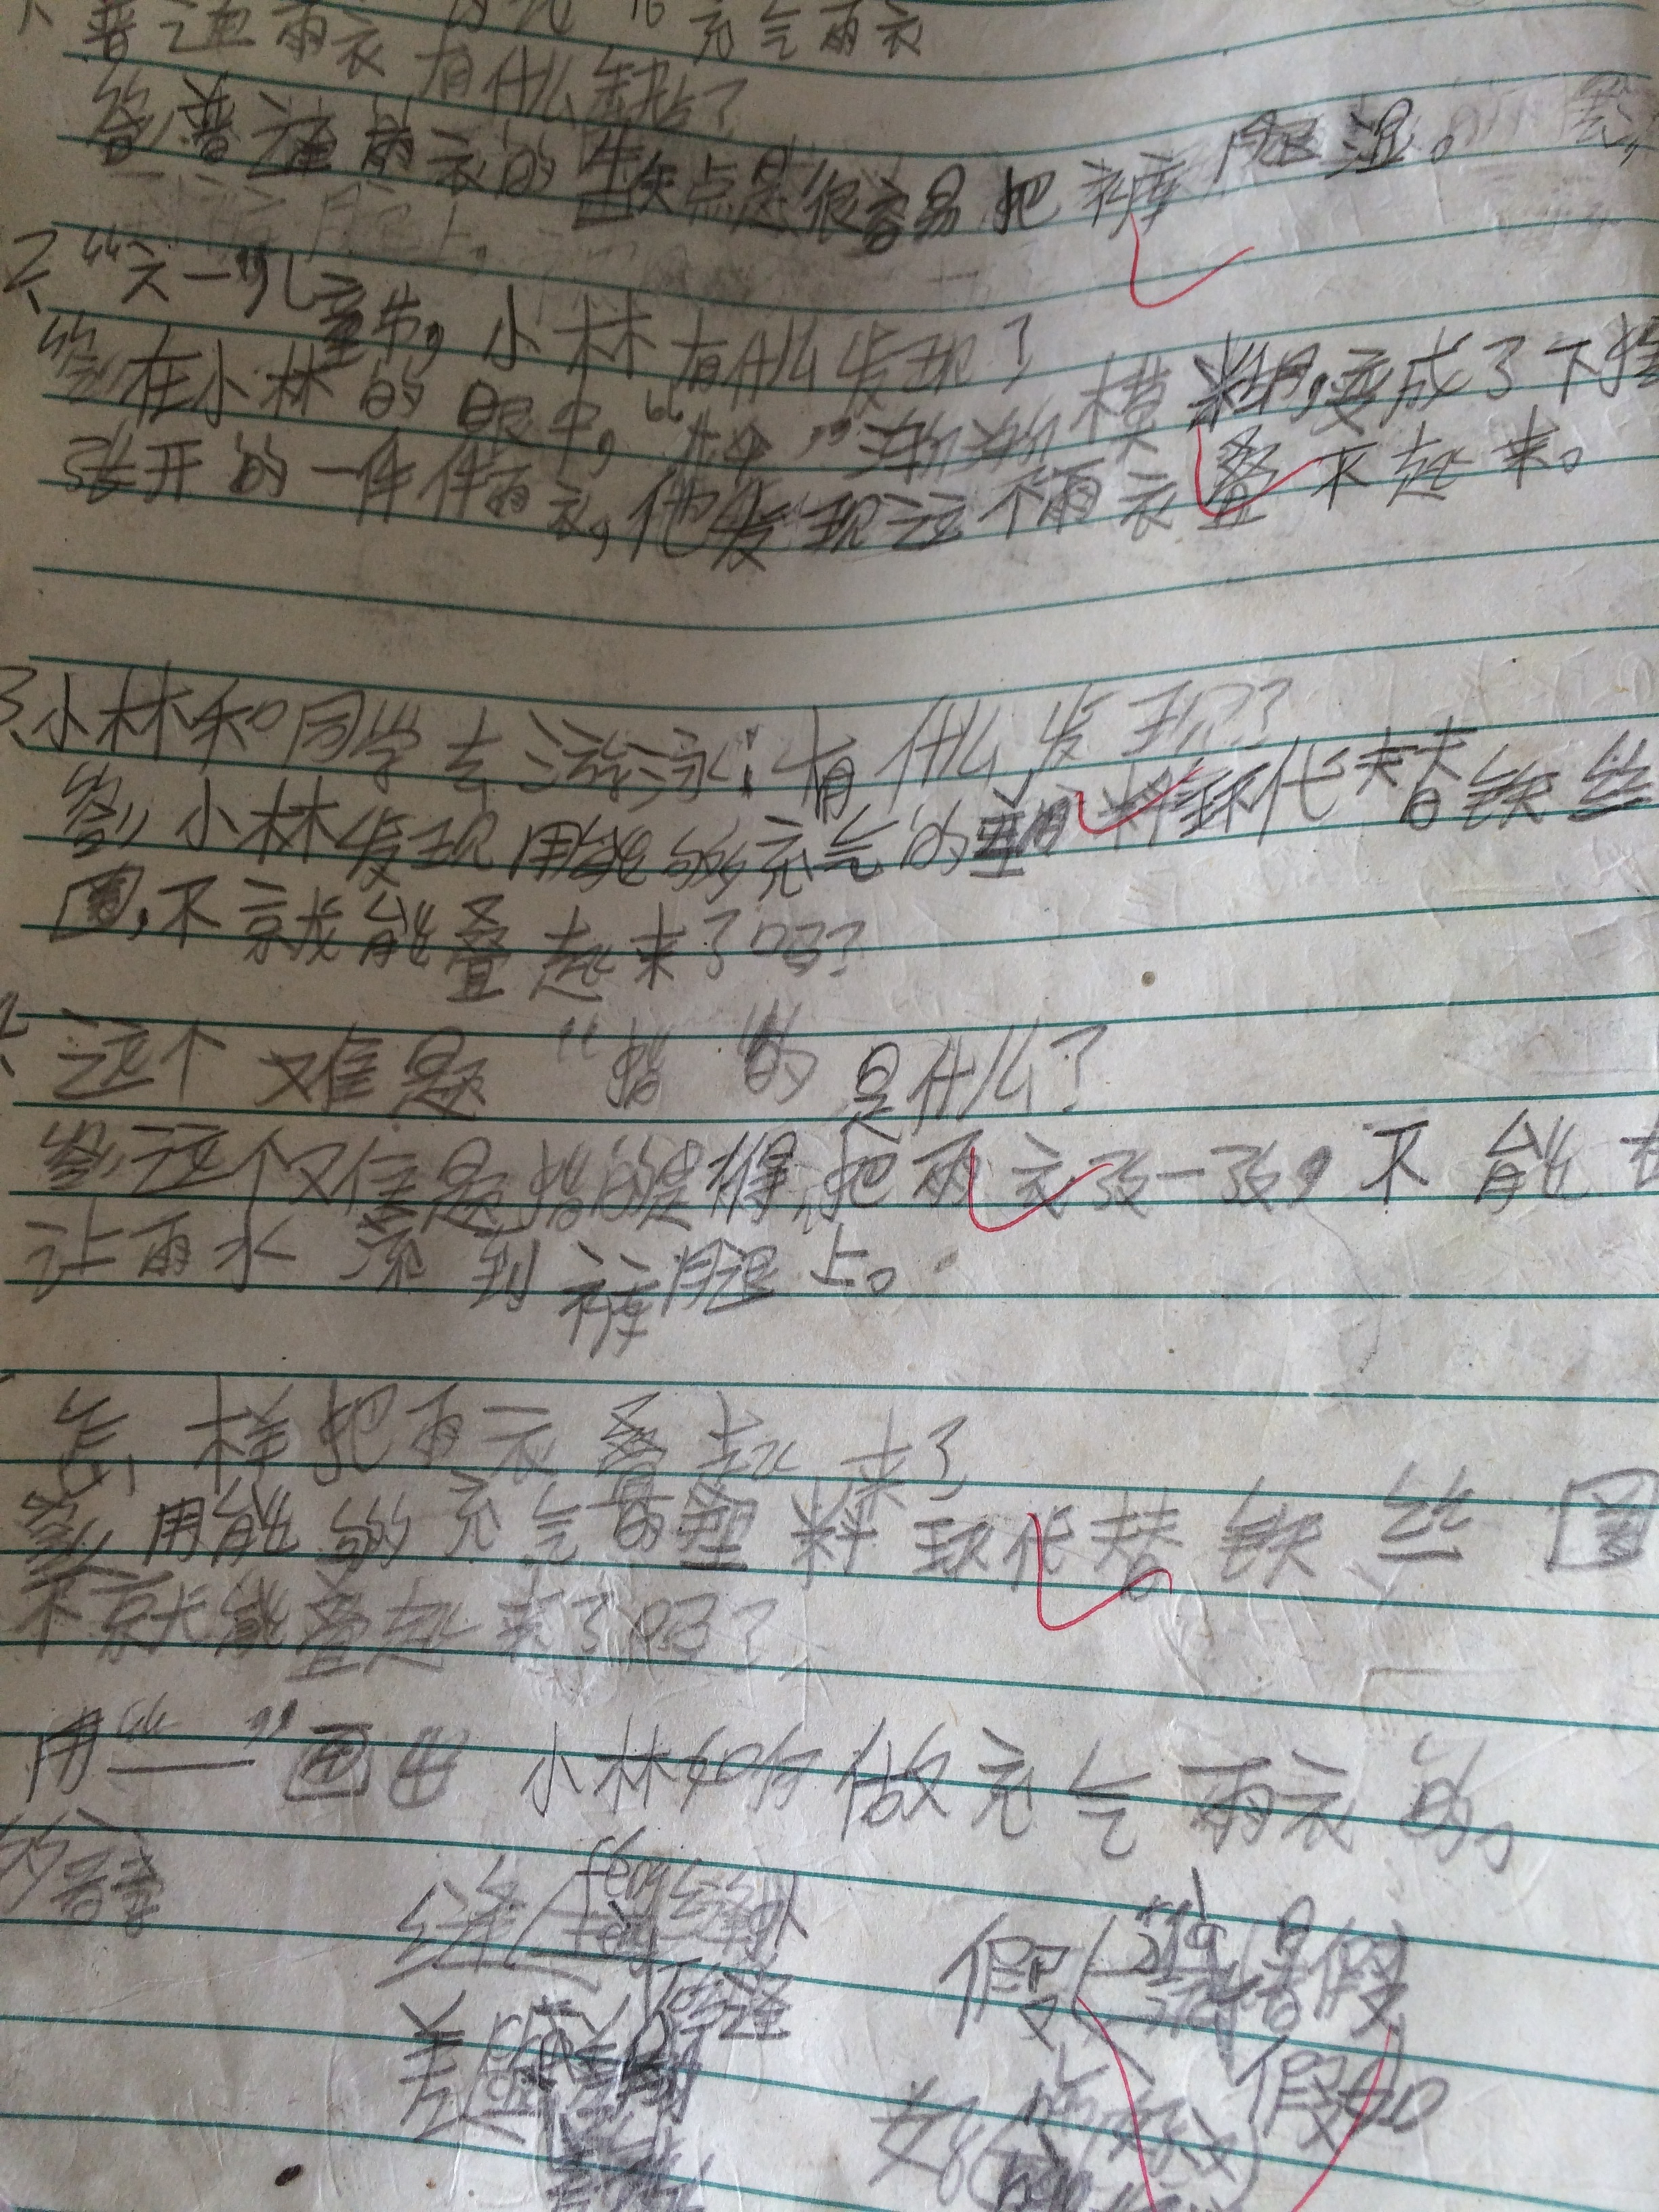 充气雨衣
1、普通雨衣有什么缺点?
答:普通雨衣的缺点是很容易把裤腿湿。
2、“六一”儿童节,小林有什么发现?
答:在小林的眼中,“ ”渐渐模糊,变成了下
张开的一件件雨衣,他发现这个雨衣叠不起来。
3、小林和同学去游泳,有什么发现?
答:小林发现用能够充气的塑料环代替铁丝
圈,不就能叠起来了吗?
这个难题“指”的是什么?
答:这个难题指的是得把雨衣张一张,不能
让雨水流到裤腿上。
怎样把雨衣叠起来?
答:用能够充气的塑料环代替铁丝圈
不就能叠起来了吗?
用“——”画出小林如何做充气雨衣的。
的
缝 féng 缝补
假 jià 暑假
差 缝
假如
好